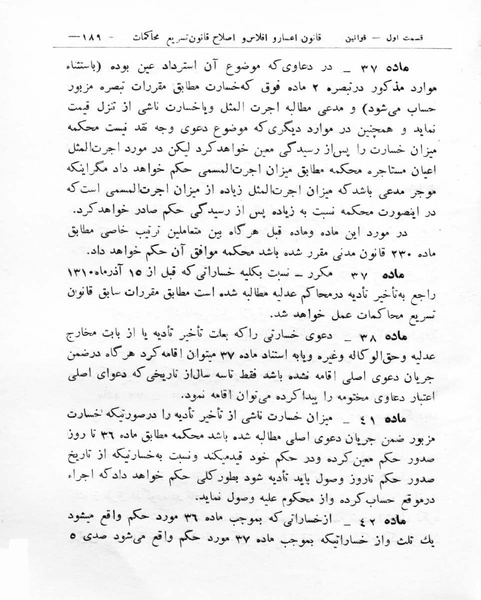 قسمت اول — قوانین    قانون اعسار و افلاس و اصلاح قانون تسریع محاکمات    —۱۸۹
ماده ۳۷ — در دعاوی که موضوع آن استرداد عین بوده (باستثناء
موارد مذکور در تبصره ۲ ماده فوق که خسارت مطابق مقررات تبصره مزبور
حساب می‌شود) و مدعی مطالبه اجرت المثل ویاخسارت ناشی از تنزل قیمت
نماید و همچنین در موارد دیگری که موضوع دعوی وجه نقد نیست محکمه
میزان خسارت را پس از رسیدگی معین خواهد کرد لیکن در مورد اجرت‌المثل
اعیان مستاجره محکمه مطابق میزان اجرت‌المسمی حکم خواهد داد مگر اینکه
موجر مدعی باشد که میزان اجرت‌المثل زیاده از میزان اجرت‌المسمی است که
در اینصورت محکمه نسبت به زیاده پس از رسیدگی حکم صادر خواهد کرد.
در مورد این ماده وماده قبل هرگاه بین متعاملین ترتیب خاصی مطابق
ماده ۲۳۰ قانون مدنی مقرر شده باشد محکمه موافق آن حکم خواهد داد.
ماده ۳۷ مکرر — نسبت بکلیه خساراتی که قبل از ۱۵ آذرماه ۱۳۱۰
راجع به تأخیر تأدیه درمحاکم عدلیه مطالبه شده است مطابق مقررات سابق قانون
تسریع محاکمات عمل خواهد شد.
ماده ۳۸ — دعوی خسارتی را که بعلت تأخیر تأدیه یا از بابت مخارج
عدلیه وحق‌الوکاله وغیره ویابه استناد ماده ۳۷ میتوان اقامه کرد هرگاه درضمن
جریان دعوی اصلی اقامه نشده باشد فقط تاسه سال از تاریخی که دعوای اصلی
اعتبار دعاوی مختومه را پیدا کرده می‌توان اقامه نمود.
ماده ۴۱ — میزان خسارت ناشی از تأخیر تأدیه را درصورتیکه خسارت
مزبور ضمن جریان دعوی اصلی مطالبه شده باشد محکمه مطابق ماده ۳۶ تا روز
صدور حکم معین کرده ودر حکم خود قید میکند ونسبت به خسارتیکه از تاریخ
صدور حکم تاروز وصول باید تأدیه شود بطور کلی حکم خواهد داد که اجراء
درموقع حساب کرده واز محکوم علیه وصول نماید.
ماده ۴۲ — ازخساراتی که بموجب ماده ۳۶ مورد حکم واقع میشود
یك ثلث واز خساراتیکه بموجب ماده ۳۷ مورد حکم واقع می‌شود صدی ۵